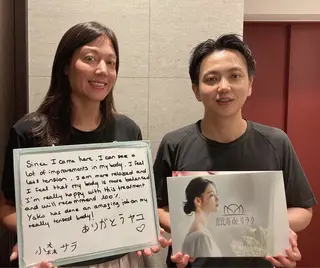 Since I came here, I can see a
lot of improvements in my body. I feel
less tension, I am more relaxed and
I feel that my body is more balanced
I'm really happy with this treatment
and will recommend 100%!
Yako has done an amazing job on my
really tensed body!
ありがとうヤコ
サラ